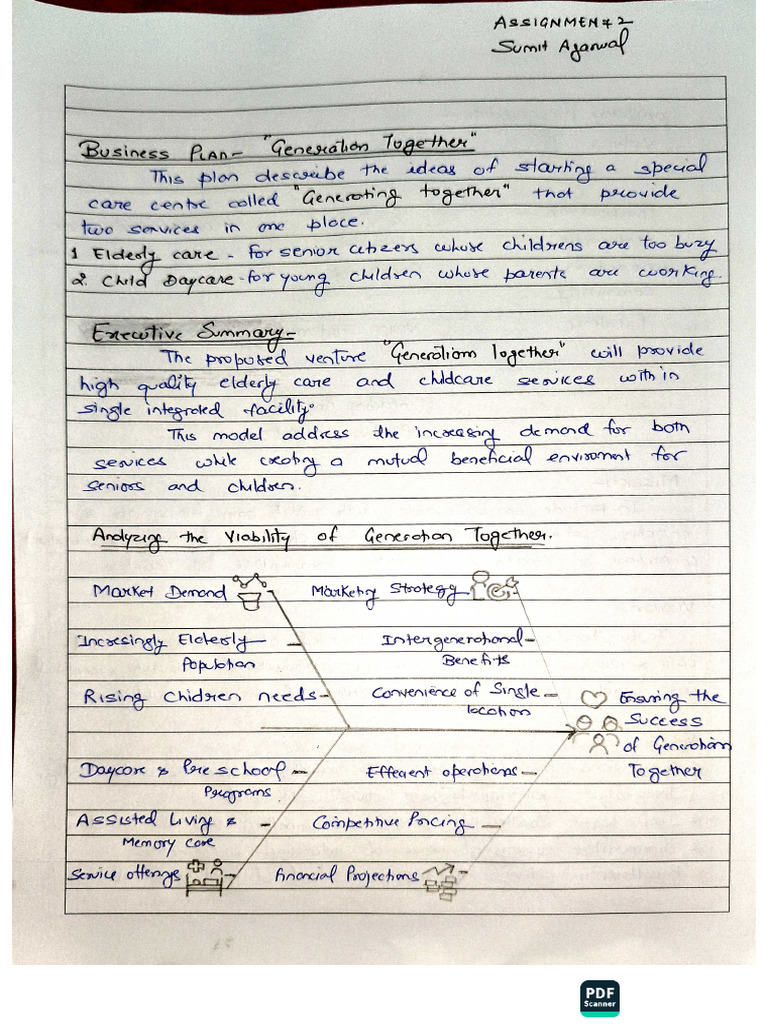 ASSIGNMENT 2
Sumit Agarwal
Business Plan- "Generation Together"
This plan describe the ideas of starting a special
care centre called "Generating together" that provide
two services in one place.
1 Elderly care - for senior citizens whose childrens are too buzy
2. Child Daycare - for young children whose parents are working.
Executive Summary-
The proposed venture "Generations Together" will provide
high quality elderly care and childcare services within
single integrated facility.
This model address the increasing demand for both
services while creating a mutual beneficial enviroment for
seniors and children.
Analyzing the Viability of Generation Together.
Market Demand
Marketing Strategy
Incresingly Elderly
Population
Intergenerational
Benefits
Rising Chidren needs
Convenience of Single
location
Ensuring the
Success
of Generation
Together
Daycare & Pre school
Programs
Effecient operations
Assisted Living &
Memory care
Competitive Pricing
Service offerings
Financial Projections
PDF
Scanner